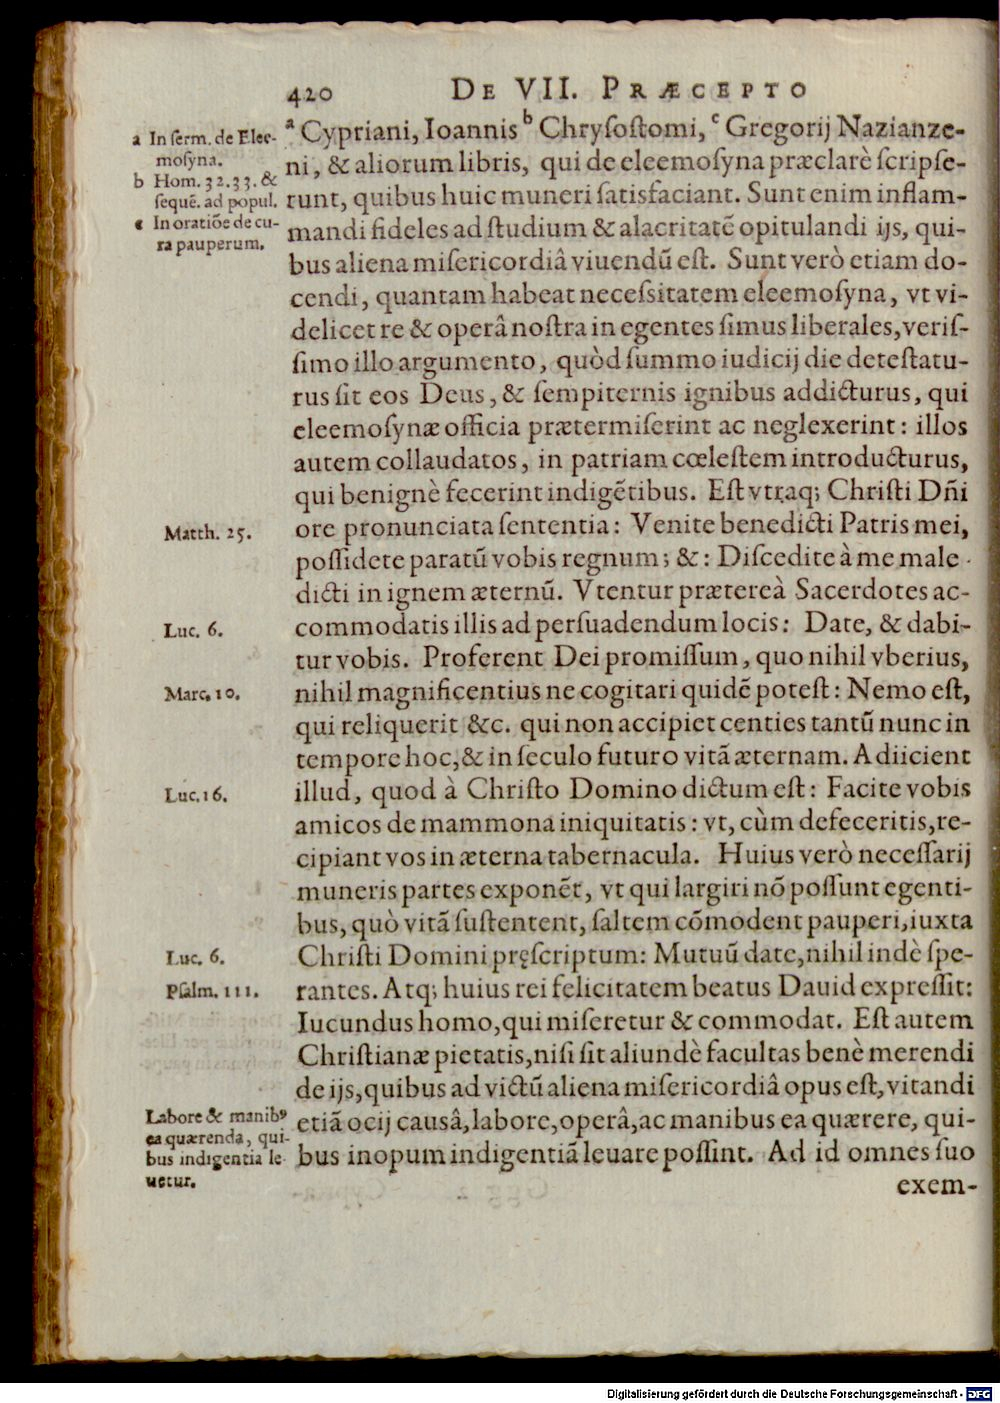 420 DE VII. PRÆCEPTO
a In ſerm. de Elee-
moſyna.
b Hom. 32.33. &
ſequē. ad popul.
c In oratiōe de cu-
ra pauperum.
ᵃ Cypriani, Ioannis ᵇ Chryſoſtomi, ᶜ Gregorij Nazianze-
ni, & aliorum libris, qui de eleemoſyna præclarè ſcripſe-
runt, quibus huic muneri ſatisfaciant. Sunt enim inflam-
mandi fideles ad ſtudium & alacritatē opitulandi ijs, qui-
bus aliena miſericordiâ viuendū eſt. Sunt verò etiam do-
cendi, quantam habeat neceſsitatem eleemoſyna, vt vi-
delicet re & operâ noſtra in egentes ſimus liberales, veriſ-
ſimo illo argumento, quòd ſummo iudicij die deteſtatu-
rus ſit eos Deus, & ſempiternis ignibus addicturus, qui
eleemoſynæ officia prætermiſerint ac neglexerint: illos
autem collaudatos, in patriam cœleſtem introducturus,
qui benignè fecerint indigētibus. Eſt vtraq; Chriſti Dñi
Matth. 25.
ore pronunciata ſententia: Venite benedicti Patris mei,
poſſidete paratū vobis regnum; &: Diſcedite à me male-
dicti in ignem æternū. Vtentur prætereà Sacerdotes ac-
Luc. 6.
commodatis illis ad perſuadendum locis: Date, & dabi-
tur vobis. Proferent Dei promiſſum, quo nihil vberius,
Marc. 10.
nihil magnificentius ne cogitari quidē poteſt: Nemo eſt,
qui reliquerit &c. qui non accipiet centies tantū nunc in
tempore hoc, & in ſeculo futuro vitā æternam. Adiicient
Luc. 16.
illud, quod à Chriſto Domino dictum eſt: Facite vobis
amicos de mammona iniquitatis: vt, cùm defeceritis, re-
cipiant vos in æterna tabernacula. Huius verò neceſſarij
muneris partes exponēt, vt qui largiri nō poſſunt egenti-
bus, quò vitā ſuſtentent, ſaltem cōmodent pauperi, iuxta
Luc. 6.
Chriſti Domini pręſcriptum: Mutuū date, nihil indè ſpe-
Pſalm. 111.
rantes. Atq; huius rei felicitatem beatus Dauid expreſſit:
Iucundus homo, qui miſeretur & commodat. Eſt autem
Chriſtianæ pietatis, niſi ſit aliundè facultas benè merendi
de ijs, quibus ad victū aliena miſericordiâ opus eſt, vitandi
Labore & manibꝰ
ea quærenda, qui-
bus indigentia le
uetur.
etiā ocij causâ, labore, operâ, ac manibus ea quærere, qui-
bus inopum indigentiā leuare poſſint. Ad id omnes ſuo
exem-
Digitalisierung gefördert durch die Deutsche Forschungsgemeinschaft - DFG